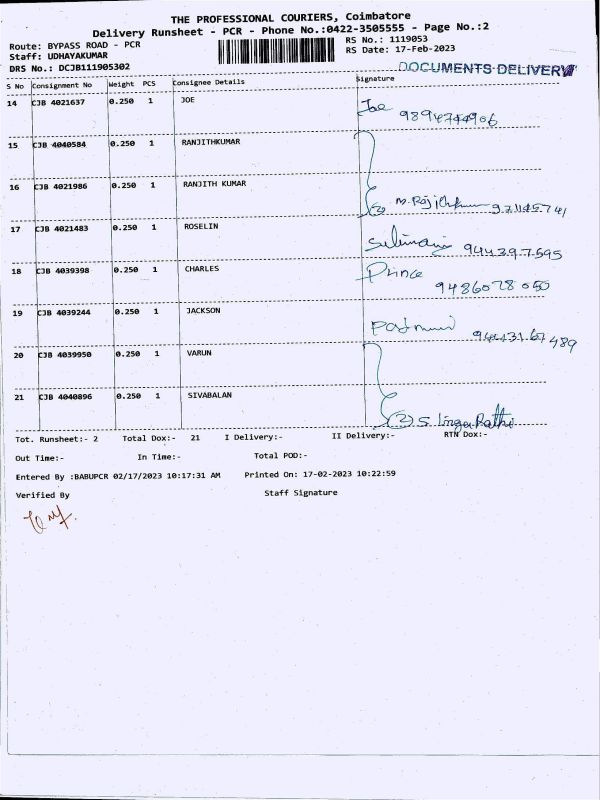 THE PROFESSIONAL COURIERS, Coimbatore
Delivery Runsheet - PCR - Phone No.:0422-3505555 - Page No.:2
Route: BYPASS ROAD - PCR
RS No.: 1119053
Staff: UDHAYAKUMAR
RS Date: 17-Feb-2023
DRS No.: DCJB111905302
DOCUMENTS DELIVERY
S No Consignment No Weight PCS Consignee Details Signature
14 CJB 4021637 0.250 1 JOE Joe 9894744906
15 CJB 4040584 0.250 1 RANJITHKUMAR
16 CJB 4021986 0.250 1 RANJITH KUMAR (2)
17 CJB 4021483 0.250 1 ROSELIN
18 CJB 4039398 0.250 1 CHARLES Prince 9486078050
19 CJB 4039244 0.250 1 JACKSON
20 CJB 4039950 0.250 1 VARUN
21 CJB 4040896 0.250 1 SIVABALAN (2) S.
Tot. Runsheet:- 2 Total Dox:- 21 I Delivery:- II Delivery:- RTN Dox:-
Out Time:- In Time:- Total POD:-
Entered By :BABUPCR 02/17/2023 10:17:31 AM Printed On: 17-02-2023 10:22:59
Verified By Staff Signature